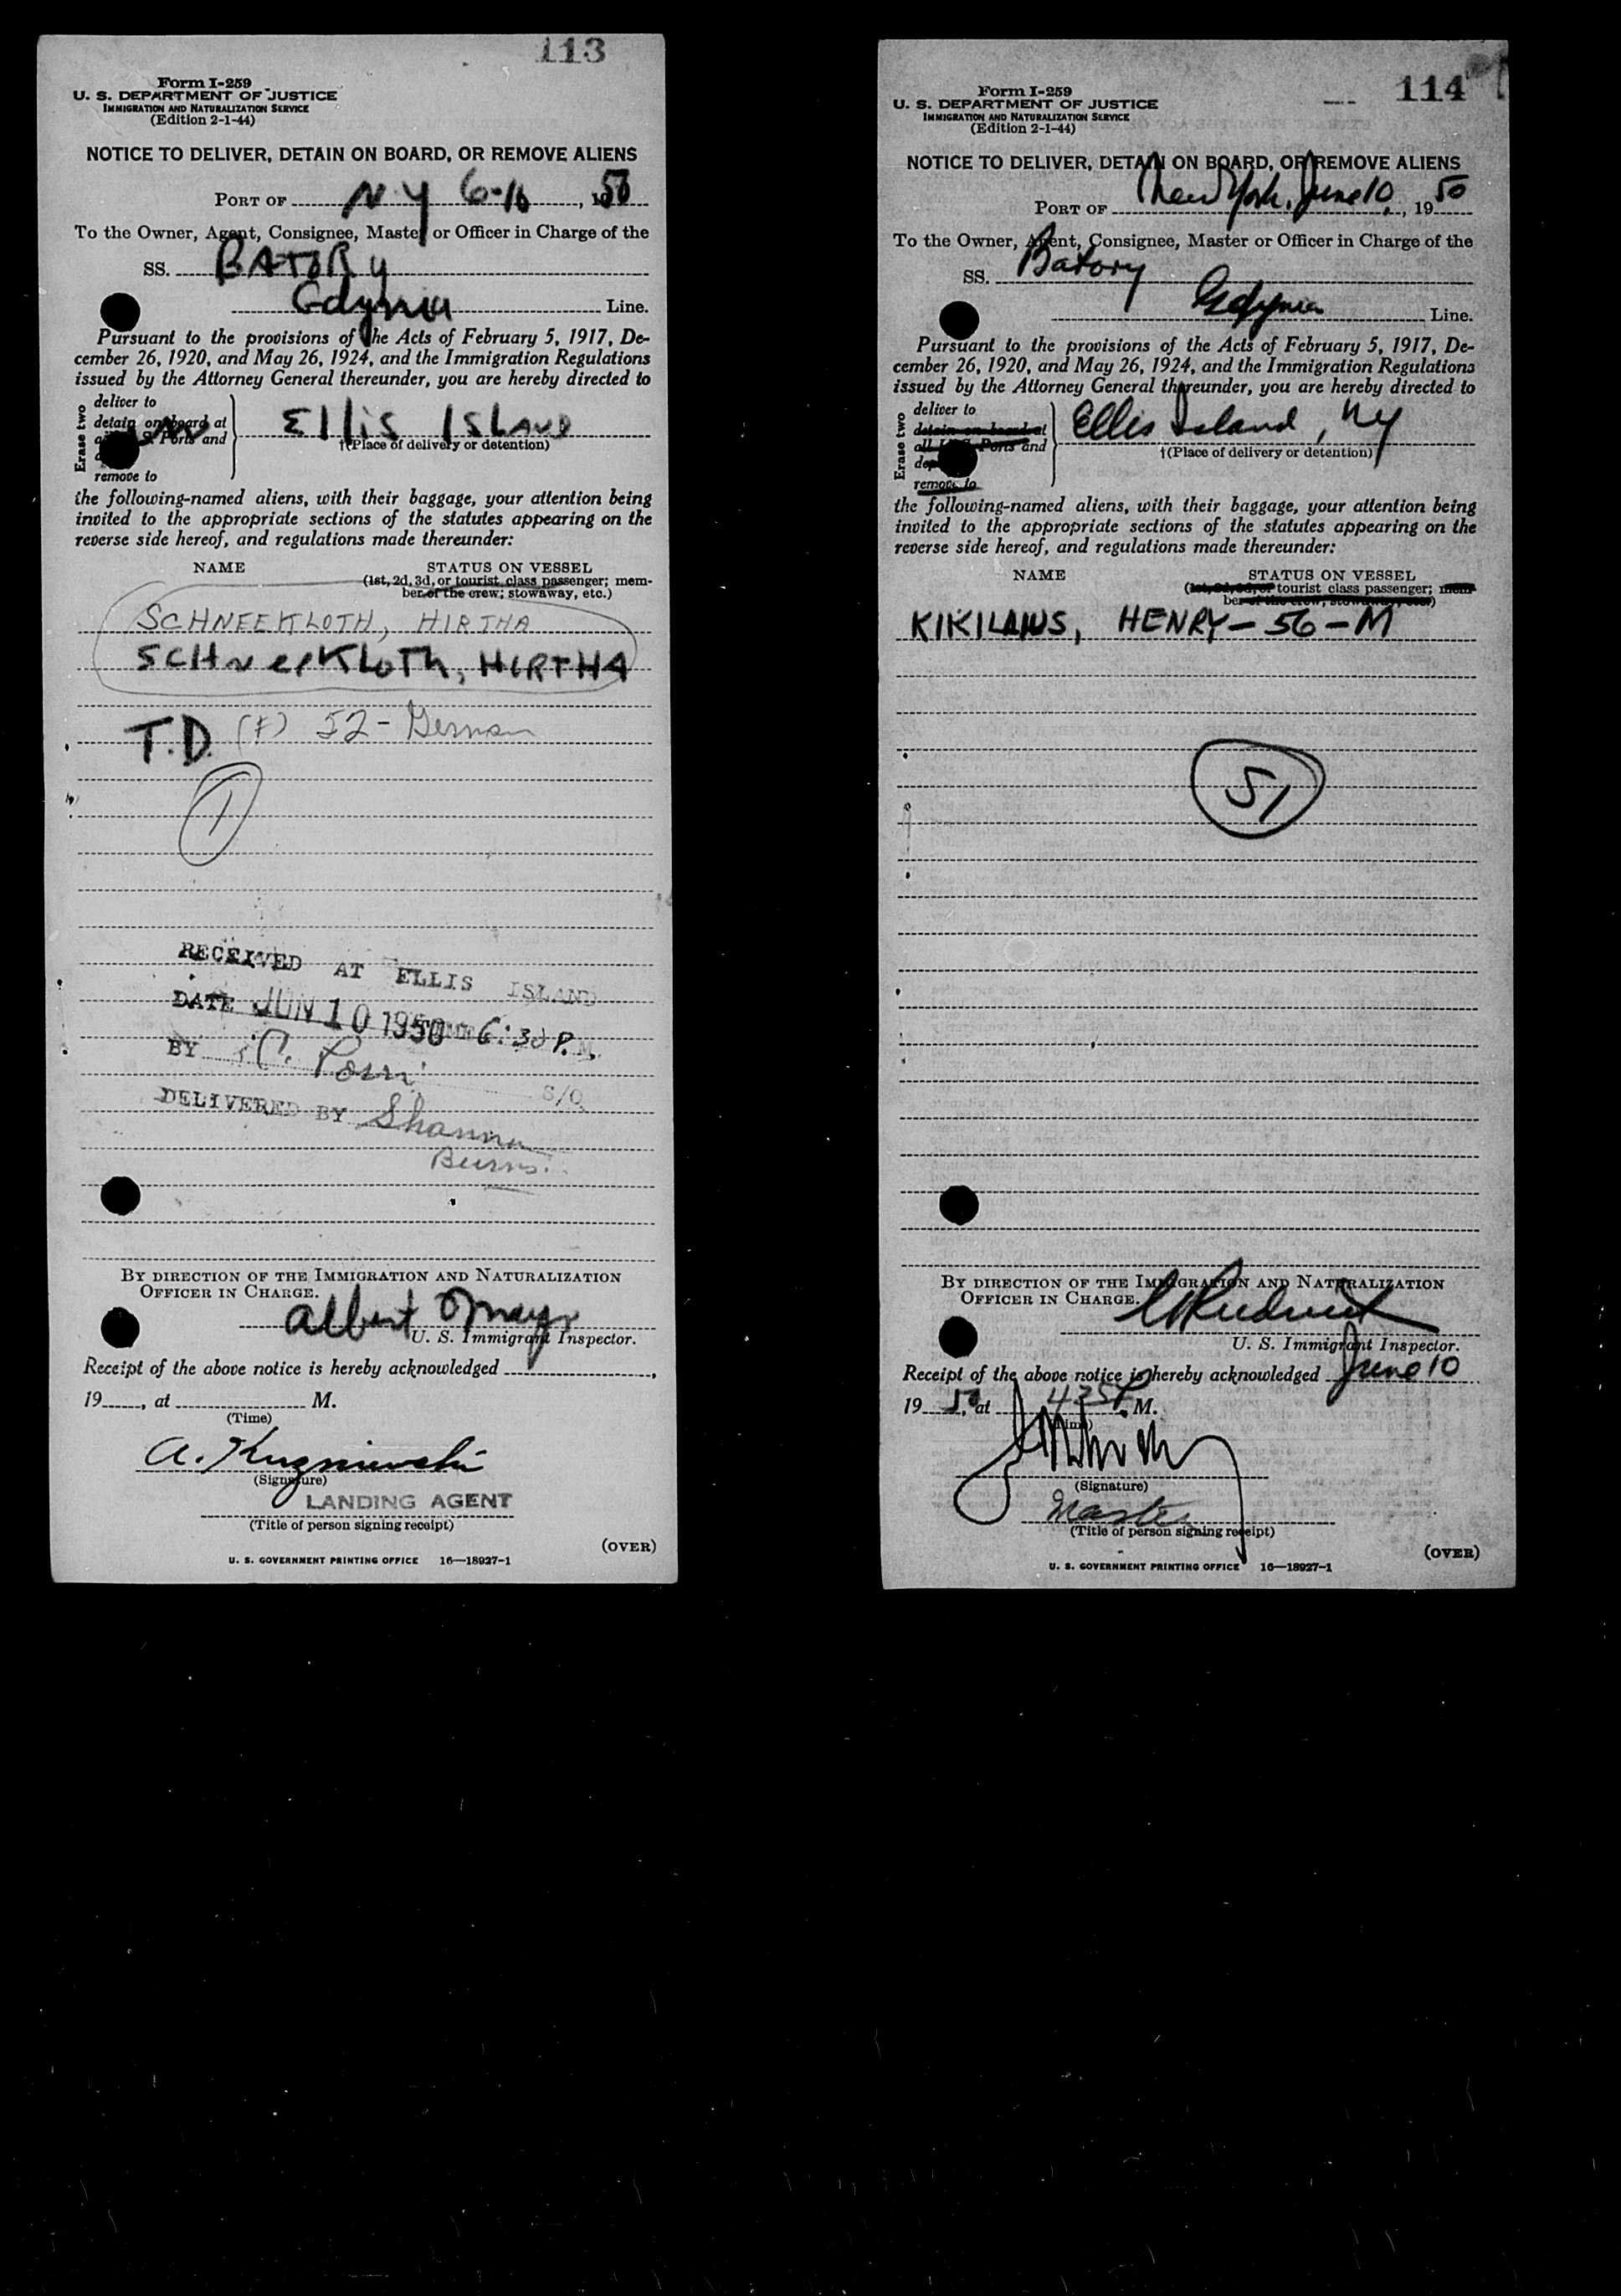 113
Form I-259
U. S. DEPARTMENT OF JUSTICE
IMMIGRATION AND NATURALIZATION SERVICE
(Edition 2-1-44)
NOTICE TO DELIVER, DETAIN ON BOARD, OR REMOVE ALIENS
PORT OF N Y 6-10, 1950
To the Owner, Agent, Consignee, Master or Officer in Charge of the
SS. BATORY
Gdynia Line.
Pursuant to the provisions of the Acts of February 5, 1917, De-
cember 26, 1920, and May 26, 1924, and the Immigration Regulations
issued by the Attorney General thereunder, you are hereby directed to
Erase two
deliver to
detain on board at
Ports and
remove to
Ellis Island
†(Place of delivery or detention)
the following-named aliens, with their baggage, your attention being
invited to the appropriate sections of the statutes appearing on the
reverse side hereof, and regulations made thereunder:
NAME STATUS ON VESSEL
(1st, 2d, 3d, or tourist class passenger; mem-
ber of the crew; stowaway, etc.)
SCHNEEKLOTH, HIRTHA
SCHneeKLoTh, HIRTHA
T.D. (F) 52 - German
1
RECEIVED AT ELLIS ISLAND
DATE JUN 10 1950 TIME 6:30 P.M.
BY C.
DELIVERED BY
Burns.
BY DIRECTION OF THE IMMIGRATION AND NATURALIZATION
OFFICER IN CHARGE.
Albert
U. S. Immigrant Inspector.
Receipt of the above notice is hereby acknowledged
19 , at M.
(Time)
A. Kuzniewski
(Signature)
LANDING AGENT
(Title of person signing receipt)
(OVER)
U. S. GOVERNMENT PRINTING OFFICE 16—18927-1
114
Form I-259
U. S. DEPARTMENT OF JUSTICE
IMMIGRATION AND NATURALIZATION SERVICE
(Edition 2-1-44)
NOTICE TO DELIVER, DETAIN ON BOARD, OR REMOVE ALIENS
PORT OF New York, June 10, 1950
To the Owner, Agent, Consignee, Master or Officer in Charge of the
SS. Batory
Gdynia Line.
Pursuant to the provisions of the Acts of February 5, 1917, De-
cember 26, 1920, and May 26, 1924, and the Immigration Regulations
issued by the Attorney General thereunder, you are hereby directed to
Erase two
deliver to
detain on board at
all U.S. Ports and
remove to
Ellis Island, NY
†(Place of delivery or detention)
the following-named aliens, with their baggage, your attention being
invited to the appropriate sections of the statutes appearing on the
reverse side hereof, and regulations made thereunder:
NAME STATUS ON VESSEL
(1st, 2d, 3d, or tourist class passenger; mem-
ber of the crew; stowaway, etc.)
HENRY - 56 - M
51
BY DIRECTION OF THE IMMIGRATION AND NATURALIZATION
OFFICER IN CHARGE.
U. S. Immigrant Inspector.
Receipt of the above notice is hereby acknowledged June 10
19 50, at 425 P. M.
(Time)
(Signature)
Master
(Title of person signing receipt)
(OVER)
U. S. GOVERNMENT PRINTING OFFICE 16—18927-1